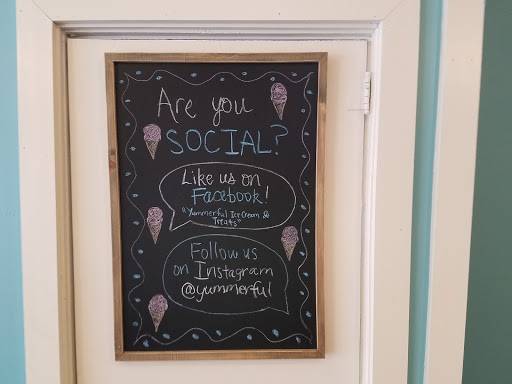 Are you
SOCIAL?
Like us on
Facebook!
"Yummerful Ice Cream &
Treats"
Follow us
on Instagram
@yummerful